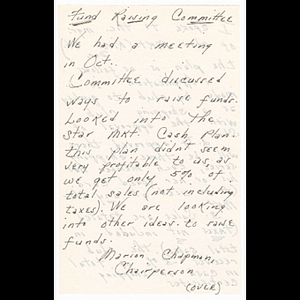 Fund Raising Committee
We had a meeting
in Oct..
Committee discussed
ways to raise funds.
Looked into the
Star Mkt. Cash Plan.
this plan didn't seem
very profitable to us, as
we get only 5% of
total sales (not including
taxes). We are looking
into other ideas to raise
funds.
Marion Chapman,
Chairperson
(over)